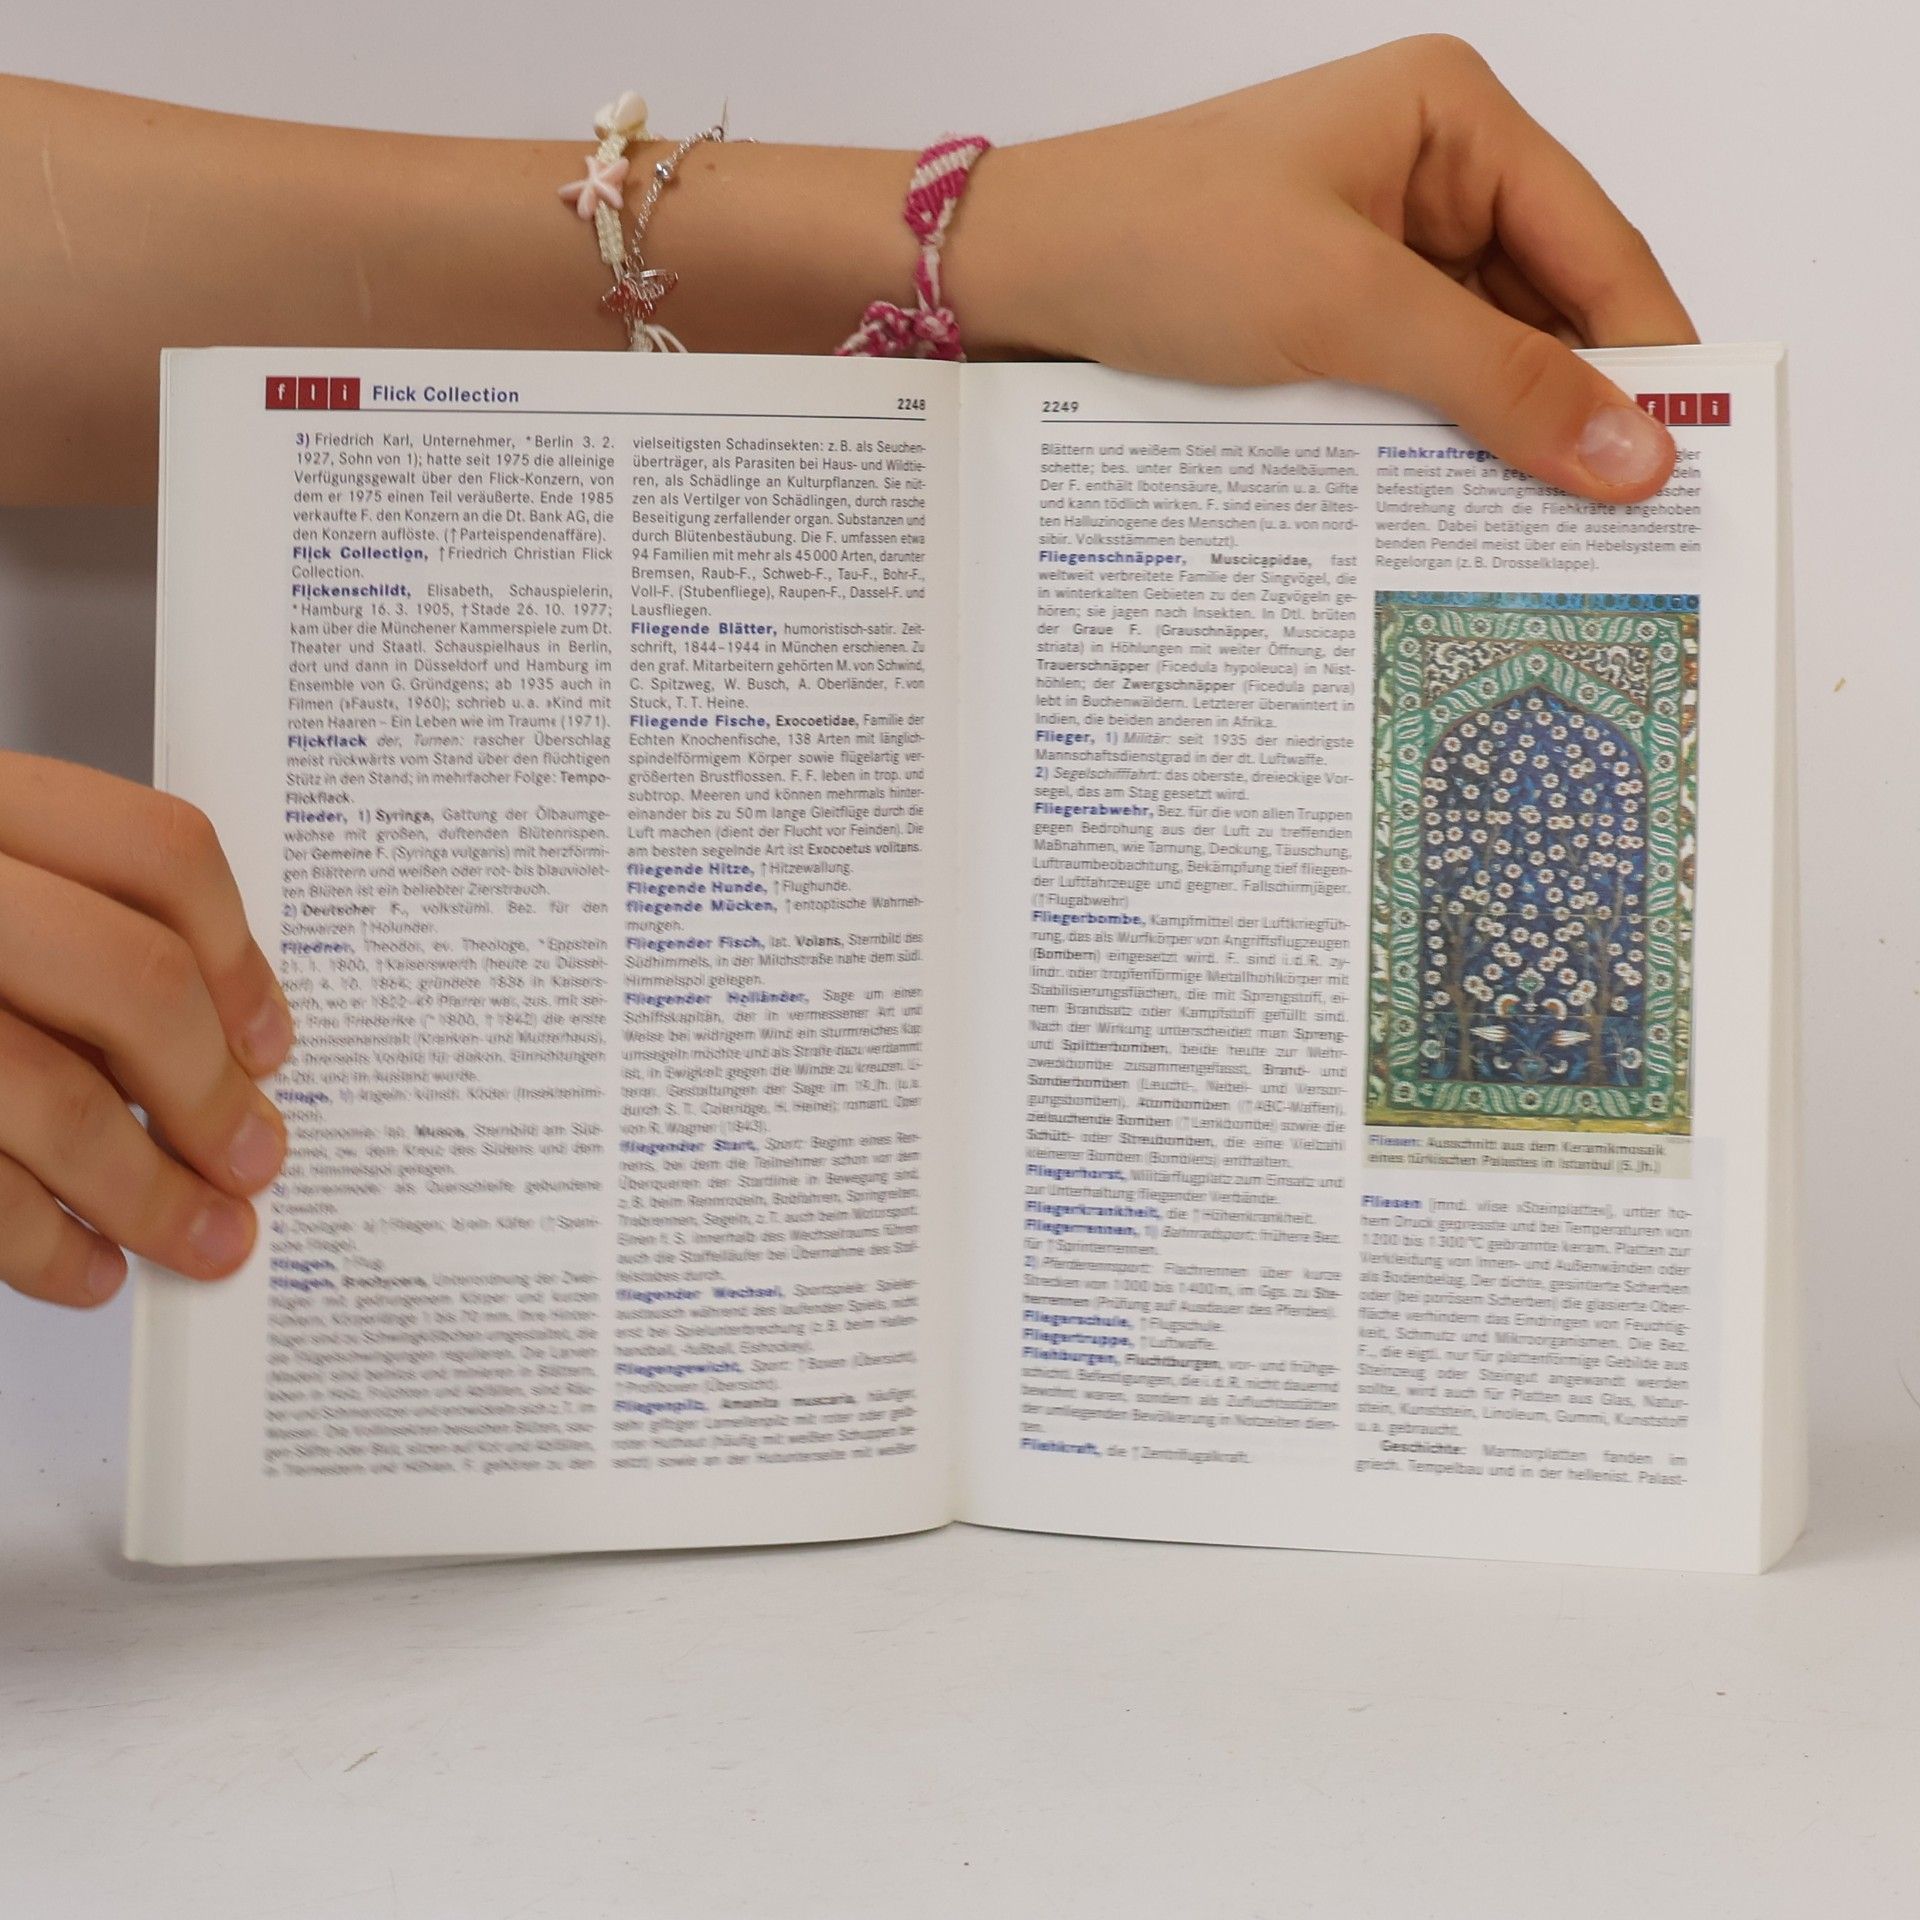 fli Flick Collection
2248
3) Friedrich Karl, Unternehmer, *Berlin 3. 2.
1927, Sohn von 1); hatte seit 1975 die alleinige
Verfügungsgewalt über den Flick-Konzern, von
dem er 1975 einen Teil veräußerte. Ende 1985
verkaufte F. den Konzern an die Dt. Bank AG, die
den Konzern auflöste. (↑Parteispendenaffäre).
Flick Collection, ↑Friedrich Christian Flick
Collection.
Flickenschildt, Elisabeth, Schauspielerin,
*Hamburg 16. 3. 1905, †Stade 26. 10. 1977;
kam über die Münchener Kammerspiele zum Dt.
Theater und Staatl. Schauspielhaus in Berlin,
dort und dann in Düsseldorf und Hamburg im
Ensemble von G. Gründgens; ab 1935 auch in
Filmen (»Faust«, 1960); schrieb u. a. »Kind mit
roten Haaren – Ein Leben wie im Traum« (1971).
Flickflack der, Turnen: rascher Überschlag
meist rückwärts vom Stand über den flüchtigen
Stütz in den Stand; in mehrfacher Folge: Tempo-
Flickflack.
Flieder, 1) Syringa, Gattung der Ölbaumge-
wächse mit großen, duftenden Blütenrispen.
Der Gemeine F. (Syringa vulgaris) mit herzförmi-
gen Blättern und weißen oder rot- bis blauviolet-
ten Blüten ist ein beliebter Zierstrauch.
2) Deutscher F., volkstüml. Bez. für den
Schwarzen ↑Holunder.
Fliedner, Theodor, ev. Theologe, *Eppstein
21. 1. 1800, †Kaiserswerth (heute zu Düssel-
dorf) 4. 10. 1864; gründete 1836 in Kaisers-
werth, wo er 1822–49 Pfarrer war, zus. mit sei-
Frau Friederike (*1800, †1842) die erste
(Kranken- und Mutterhaus),
Vorbild für diakon. Einrichtungen
in Dtl. und im Ausland wurde.
Fliege, 1) Angeln: künstl. Köder (Insektenimi-
Astronomie: lat. Musca, Sternbild am Süd-
dem Kreuz des Südens und dem
Himmelspol gelegen.
3) Herrenmode: als Querschleife gebundene
Krawatte.
4) Zoologie: a) ↑Fliegen; b) ein Käfer (↑Spani-
sche Fliege).
Fliegen, ↑Flug.
Fliegen, Brachycera, Unterordnung der Zwei-
flügler mit gedrungenem Körper und kurzen
Fühlern, Körperlänge 1 bis 70 mm. Ihre Hinter-
flügel sind zu Schwingkölbchen umgestaltet, die
die Flügelschwingungen regulieren. Die Larven
(Maden) sind beinlos und minieren in Blättern,
leben in Holz, Früchten und Abfällen, sind Räu-
ber und Schmarotzer und entwickeln sich z. T. im
Wasser. Die Vollinsekten besuchen Blüten, sau-
gen Säfte oder Blut, sitzen auf Kot und Abfällen,
in Tiernestern und Höhlen. F. gehören zu den
vielseitigsten Schadinsekten: z. B. als Seuchen-
überträger, als Parasiten bei Haus- und Wildtie-
ren, als Schädlinge an Kulturpflanzen. Sie nüt-
zen als Vertilger von Schädlingen, durch rasche
Beseitigung zerfallender organ. Substanzen und
durch Blütenbestäubung. Die F. umfassen etwa
94 Familien mit mehr als 45 000 Arten, darunter
Bremsen, Raub-F., Schweb-F., Tau-F., Bohr-F.,
Voll-F. (Stubenfliege), Raupen-F., Dassel-F. und
Lausfliegen.
Fliegende Blätter, humoristisch-satir. Zeit-
schrift, 1844–1944 in München erschienen. Zu
den graf. Mitarbeitern gehörten M. von Schwind,
C. Spitzweg, W. Busch, A. Oberländer, F. von
Stuck, T. T. Heine.
Fliegende Fische, Exocoetidae, Familie der
Echten Knochenfische, 138 Arten mit länglich-
spindelförmigem Körper sowie flügelartig ver-
größerten Brustflossen. F. F. leben in trop. und
subtrop. Meeren und können mehrmals hinter-
einander bis zu 50 m lange Gleitflüge durch die
Luft machen (dient der Flucht vor Feinden). Die
am besten segelnde Art ist Exocoetus volitans.
fliegende Hitze, ↑Hitzewallung.
Fliegende Hunde, ↑Flughunde.
fliegende Mücken, ↑entoptische Wahrneh-
mungen.
Fliegender Fisch, lat. Volans, Sternbild des
Südhimmels, in der Milchstraße nahe dem südl.
Himmelspol gelegen.
Fliegender Holländer, Sage um einen
Schiffskapitän, der in vermessener Art und
Weise bei widrigem Wind ein sturmreiches Kap
umsegeln möchte und als Strafe dazu verdammt
ist, in Ewigkeit gegen die Winde zu kreuzen. Li-
terar. Gestaltungen der Sage im 19. Jh. (u. a.
durch S. T. Coleridge, H. Heine); romant. Oper
von R. Wagner (1843).
fliegender Start, Sport: Beginn eines Ren-
nens, bei dem die Teilnehmer schon vor dem
Überqueren der Startlinie in Bewegung sind,
z. B. beim Rennrodeln, Bobfahren, Springreiten,
Trabrennen, Segeln, z. T. auch beim Motorsport.
Einen f. S. innerhalb des Wechselraums führen
auch die Staffelläufer bei Übernahme des Staf-
felstabes durch.
fliegender Wechsel, Sportspiele: Spieler-
austausch während des laufenden Spiels, nicht
erst bei Spielunterbrechung (z. B. beim Hallen-
handball, -fußball, Eishockey).
Fliegengewicht, Sport: ↑Boxen (Übersicht),
↑Profiboxen (Übersicht).
Fliegenpilz, Amanita muscaria, häufiger,
sehr giftiger Lamellenpilz mit roter oder gelb-
roter Huthaut (häufig mit weißen Schuppen be-
setzt) sowie an der Hutunterseite mit weißen
2249
fli
Blättern und weißem Stiel mit Knolle und Man-
schette; bes. unter Birken und Nadelbäumen.
Der F. enthält Ibotensäure, Muscarin u. a. Gifte
und kann tödlich wirken. F. sind eines der ältes-
ten Halluzinogene des Menschen (u. a. von nord-
sibir. Volksstämmen benutzt).
Fliegenschnäpper, Muscicapidae, fast
weltweit verbreitete Familie der Singvögel, die
in winterkalten Gebieten zu den Zugvögeln ge-
hören; sie jagen nach Insekten. In Dtl. brüten
der Graue F. (Grauschnäpper, Muscicapa
striata) in Höhlungen mit weiter Öffnung, der
Trauerschnäpper (Ficedula hypoleuca) in Nist-
höhlen; der Zwergschnäpper (Ficedula parva)
lebt in Buchenwäldern. Letzterer überwintert in
Indien, die beiden anderen in Afrika.
Flieger, 1) Militär: seit 1935 der niedrigste
Mannschaftsdienstgrad in der dt. Luftwaffe.
2) Segelschifffahrt: das oberste, dreieckige Vor-
segel, das am Stag gesetzt wird.
Fliegerabwehr, Bez. für die von allen Truppen
gegen Bedrohung aus der Luft zu treffenden
Maßnahmen, wie Tarnung, Deckung, Täuschung,
Luftraumbeobachtung, Bekämpfung tief fliegen-
der Luftfahrzeuge und gegner. Fallschirmjäger.
(↑Flugabwehr)
Fliegerbombe, Kampfmittel der Luftkriegfüh-
rung, das als Wurfkörper von Angriffsflugzeugen
(Bombern) eingesetzt wird. F. sind i. d. R. zy-
lindr. oder tropfenförmige Metallhohlkörper mit
Stabilisierungsflächen, die mit Sprengstoff, ei-
nem Brandsatz oder Kampfstoff gefüllt sind.
Nach der Wirkung unterscheidet man Spreng-
und Splitterbomben, beide heute zur Mehr-
zweckbombe zusammengefasst, Brand- und
Sonderbomben (Leucht-, Nebel- und Versor-
gungsbomben), Atombomben (↑ABC-Waffen),
zielsuchende Bomben (↑Lenkbombe) sowie die
Schütt- oder Streubomben, die eine Vielzahl
kleinerer Bomben (Bomblets) enthalten.
Fliegerhorst, Militärflugplatz zum Einsatz und
zur Unterhaltung fliegender Verbände.
Fliegerkrankheit, die ↑Höhenkrankheit.
Fliegerrennen, 1) Bahnradsport: frühere Bez.
für ↑Sprinterrennen.
2) Pferderennsport: Flachrennen über kurze
Strecken von 1 000 bis 1 400 m, im Ggs. zu Ste-
herrennen (Prüfung auf Ausdauer des Pferdes).
Fliegerschule, ↑Flugschule.
Fliegertruppe, ↑Luftwaffe.
Fliehburgen, Fluchtburgen, vor- und frühge-
schichtl. Befestigungen, die i. d. R. nicht dauernd
bewohnt waren, sondern als Zufluchtsstätten
der umliegenden Bevölkerung in Notzeiten dien-
ten.
Fliehkraft, die ↑Zentrifugalkraft.
Fliehkraftregler
mit meist zwei an
befestigten Schwungmassen
Umdrehung durch die Fliehkräfte angehoben
werden. Dabei betätigen die auseinanderstre-
benden Pendel meist über ein Hebelsystem ein
Regelorgan (z. B. Drosselklappe).
Fliesen: Ausschnitt aus dem Keramikmosaik
eines türkischen Palastes in Istanbul
Fliesen [mnd. vlise »Steinplatte«], unter ho-
hem Druck gepresste und bei Temperaturen von
1 200 bis 1 300 °C gebrannte keram. Platten zur
Verkleidung von Innen- und Außenwänden oder
als Bodenbelag. Der dichte, gesinterte Scherben
oder (bei porösem Scherben) die glasierte Ober-
fläche verhindern das Eindringen von Feuchtig-
keit, Schmutz und Mikroorganismen. Die Bez.
F., die eigtl. nur für plattenförmige Gebilde aus
Steinzeug oder Steingut angewandt werden
sollte, wird auch für Platten aus Glas, Natur-
stein, Kunststein, Linoleum, Gummi, Kunststoff
u. a. gebraucht.
Geschichte: Marmorplatten fanden im
griech. Tempelbau und in der hellenist. Palast-